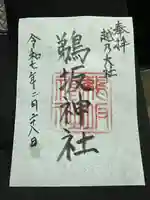 奉拝
越乃大社
鵜坂神社
令和七年二月二八日